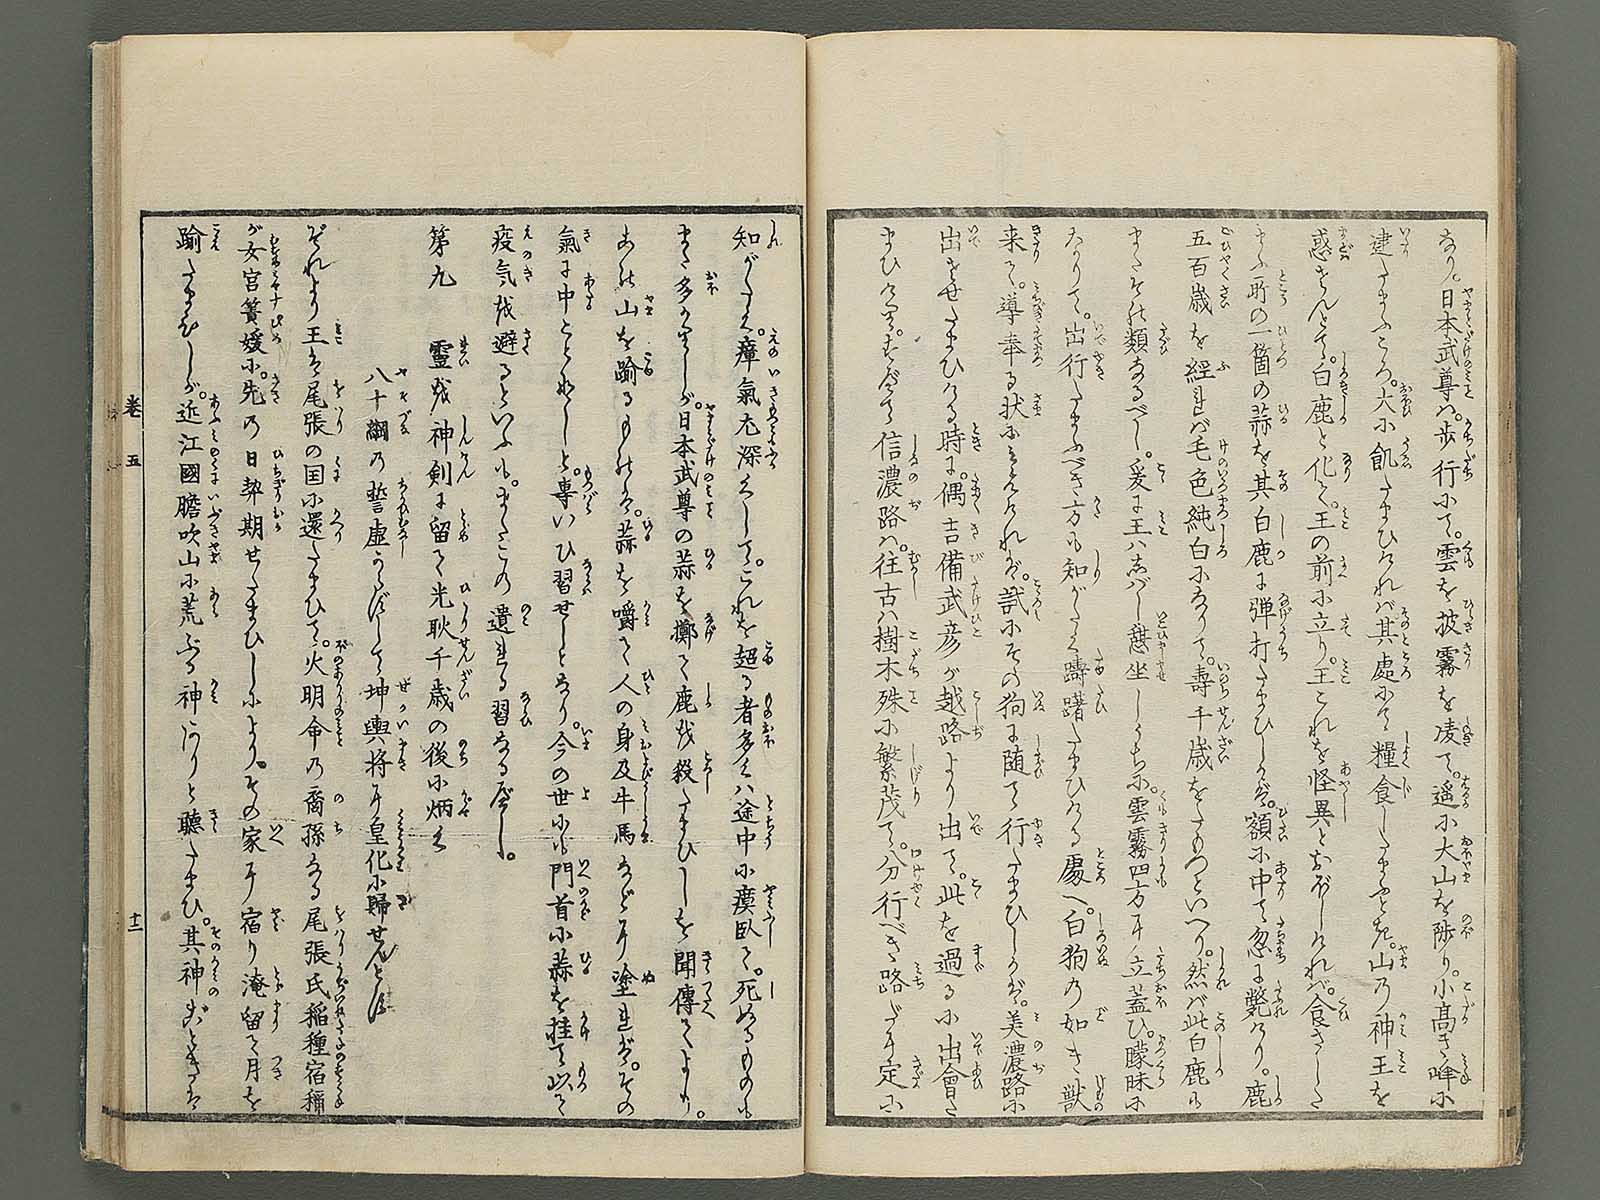 なり。日本武尊は。歩行にて。雲を披霧を凌て。遥に大山を陟り。小高き峰に
建たまふころ。大に飢たまひければ其處にて糧食したまふとき。山の神王を
惑さんとて。白鹿と化て。王の前に立り。王これを怪異とおぼしければ。食さした
まふ所の一箇の蒜を其白鹿に弾打たまひしかば。額に中て忽に斃けり。鹿
五百歳を経れば毛色純白になりて。寿千歳をたもつといへり。然ば此白鹿も
またその類なるべし。爰に王はしばし憇坐しうちに。雲霧四方に立蓋ひ。朦昧に
なりて。出行たまふべき方も知がたく躊躇たまひける處へ。白狗の如き獣
来て。導奉る状に見えければ。試にその狗に随て行たまひしかば。美濃路に
出させたまひける時に。偶吉備武彦が越路より出て。此を過るに出會た
まひけり。すべて信濃路は。往古は樹木殊に繁茂て。分行べき路だに定に
知がたく。瘴氣尤深くして。これを超る者多くは途中に瘼臥て。死ぬるもの
また多かりしが。日本武尊の蒜を擲て鹿を殺たまひしを聞傳てより。
この山を踰るものは。蒜を嚼て人の身及牛馬などに塗れば。その
氣に中ことなしと。専いひ習せしとなり。今の世に門首に蒜を挂て以て
疫気を避るといふも。またこの遺れる習なる歟し。
第九 霊を神剣に留て光耿千歳の後に炳く
八十綱の誓虚からずして坤輿将に皇化に歸せんとす
それより王は尾張の国に還たまひて。火明命の裔孫なる尾張氏稲種宿禰
が女宮簀媛に。先の日契期せたまひしにより。その家に宿り淹留て月を
踰たまひしが。近江國膽吹山に荒ぶる神ありと聽たまひ。其神
巻五
十二